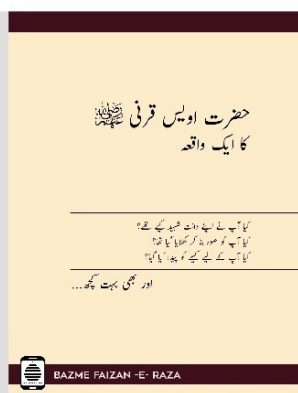 حضرت اویس قرنی رضی اللہ عنہ
کا ایک واقعہ
کیا آپ نے اپنے دانت شہید کیے تھے؟
کیا آپ کو حور بنا کر کھلایا گیا تھا؟
کیا آپ کے لیے کیلے کو پیدا کیا گیا؟
اور بھی بہت کچھ...
BAZME FAIZAN -E- RAZA